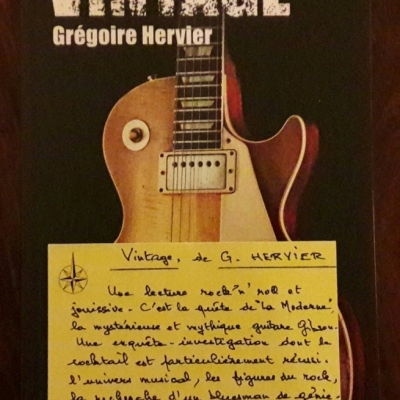 VINTAGE
Grégoire Hervier
Vintage, de G. HERVIER
Une lecture rock'n'roll et
jouissive - C'est la quête de "La Moderne",
la mystérieuse et mythique guitare Gibson.
Une enquête-investigation dont le
cocktail est particulièrement réussi.
l'univers musical, les figures du rock,
la recherche d'un bluesman de génie-